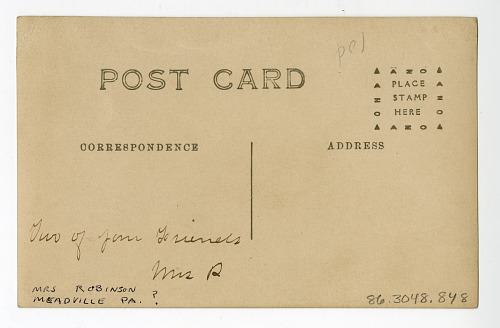 POST CARD
AZO
PLACE
STAMP
HERE
AZO
CORRESPONDENCE
ADDRESS
Two of your Friends
Mrs R
MRS ROBINSON
MEADVILLE PA. ?
86.3048.848